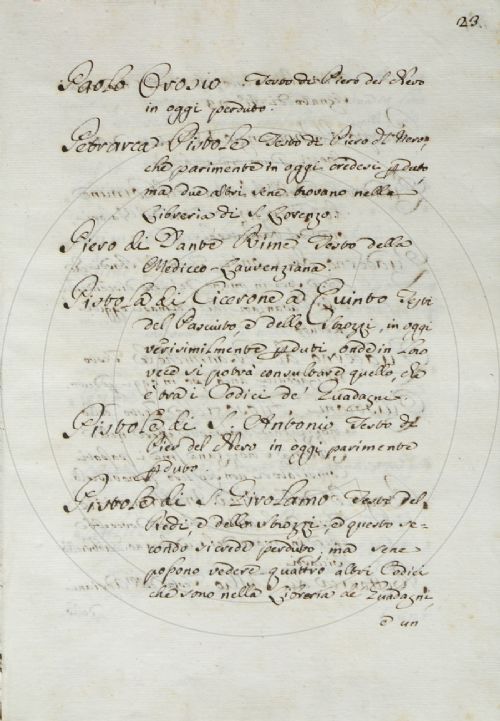 23.
Paolo Orosio. Testo di Piero del Nero
in oggi perduto.
Petrarca Pistole Testo di Piero d'l Nero,
che parimente in oggi credesi pduto,
ma due altri sene trovano nella
Libreria di S. Lorenzo.
Piero di Dante Rime Testo della
Mediceo-Laurenziana.
Pistola di Cicerone a Quinto Testi
del Pasciuto, e dello Strozzi, in oggi
verisimilmente pduti, onde in loro
vece si potrà consultare quello, che
è tra i Codici de' Guadagni.
Pistola di S. Antonio Testo di
Pier del Nero in oggi parimente
pduto.
Pistole di S. Girolamo. Testo del
Redi, e dello Strozzi, e questo se=
condo si crede perduto, ma sene
possono vedere quattro altri Codici
che sono nella Libreria de' Guadagni,
e un